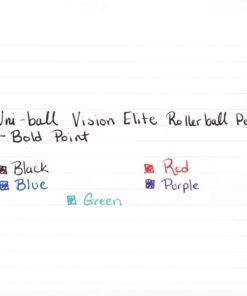 Uni-ball Vision Elite Rollerball
- Bold Point
Black Red
Blue Purple
Green